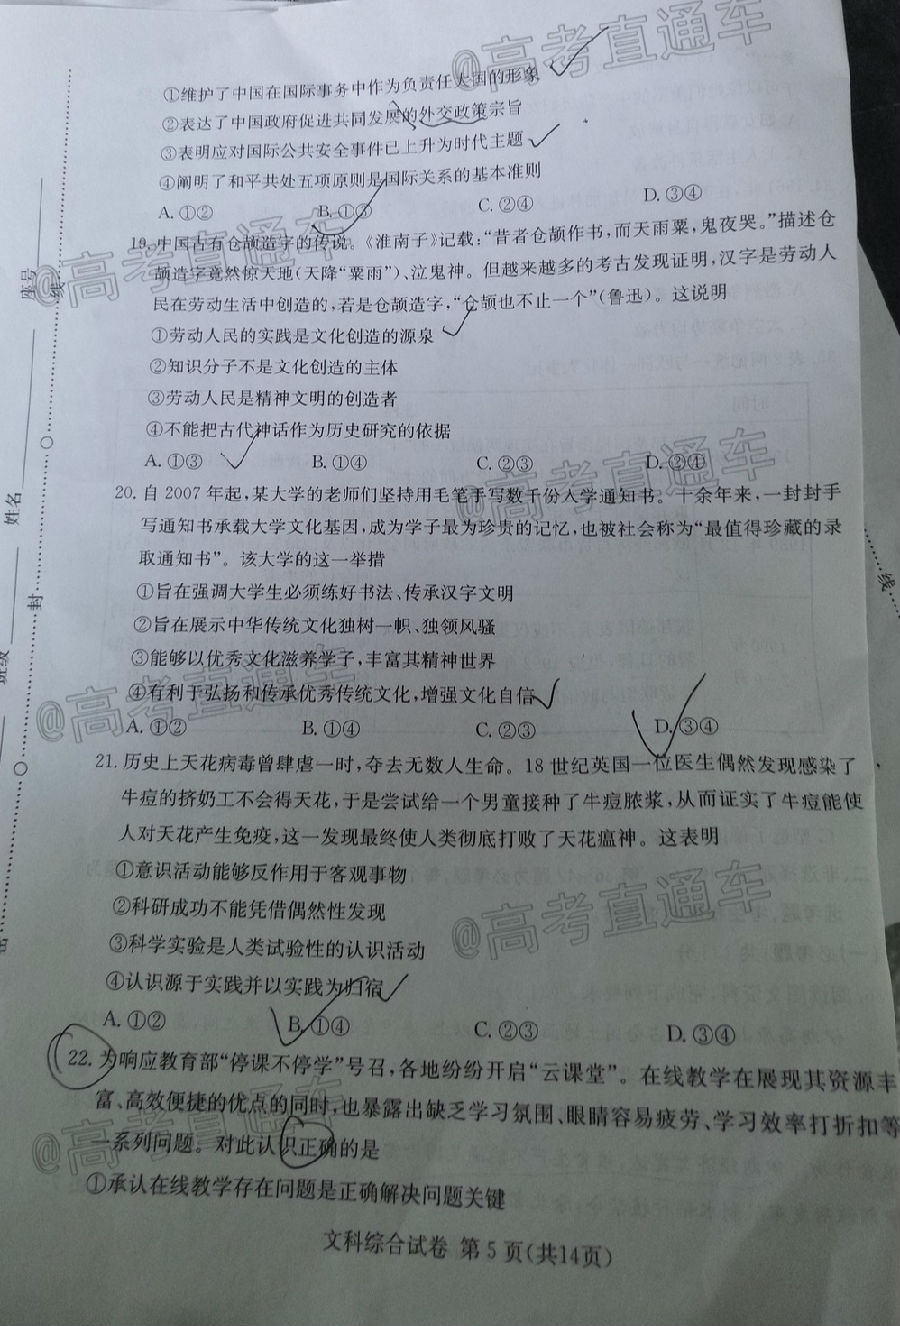 ①维护了中国在国际事务中作为负责任大国的形象
②表达了中国政府促进共同发展的外交政策宗旨
③表明应对国际公共安全事件已上升为时代主题
④阐明了和平共处五项原则是国际关系的基本准则
A. ①② B. ①③ C. ②④ D. ③④
19. 中国古有仓颉造字的传说。《淮南子》记载：“昔者仓颉作书，而天雨粟，鬼夜哭。”描述仓
颉造字竟然惊天地(天降“粟雨”)、泣鬼神。但越来越多的考古发现证明，汉字是劳动人
民在劳动生活中创造的，若是仓颉造字，“仓颉也不止一个”(鲁迅)。这说明
①劳动人民的实践是文化创造的源泉
②知识分子不是文化创造的主体
③劳动人民是精神文明的创造者
④不能把古代神话作为历史研究的依据
A. ①③ B. ①④ C. ②③ D. ②④
20. 自 2007 年起，某大学的老师们坚持用毛笔手写数千份入学通知书。十余年来，一封封手
写通知书承载大学文化基因，成为学子最为珍贵的记忆，也被社会称为“最值得珍藏的录
取通知书”。该大学的这一举措
①旨在强调大学生必须练好书法、传承汉字文明
②旨在展示中华传统文化独树一帜、独领风骚
③能够以优秀文化滋养学子，丰富其精神世界
④有利于弘扬和传承优秀传统文化，增强文化自信
A. ①② B. ①④ C. ②③ D. ③④
21. 历史上天花病毒曾肆虐一时，夺去无数人生命。18 世纪英国一位医生偶然发现感染了
牛痘的挤奶工不会得天花，于是尝试给一个男童接种了牛痘脓浆，从而证实了牛痘能使
人对天花产生免疫，这一发现最终使人类彻底打败了天花瘟神。这表明
①意识活动能够反作用于客观事物
②科研成功不能凭借偶然性发现
③科学实验是人类试验性的认识活动
④认识源于实践并以实践为归宿
A. ①② B. ①④ C. ②③ D. ③④
22. 为响应教育部“停课不停学”号召，各地纷纷开启“云课堂”。在线教学在展现其资源丰
富、高效便捷的优点的同时，也暴露出缺乏学习氛围、眼睛容易疲劳、学习效率打折扣等
一系列问题。对此认识正确的是
①承认在线教学存在问题是正确解决问题关键
文科综合试卷 第 5 页(共14页)
座号
姓名
班级
线
封
密
线
@高考直通车
@高考直通车
@高考直通车
@高考直通车
@高考直通车
@高考直通车